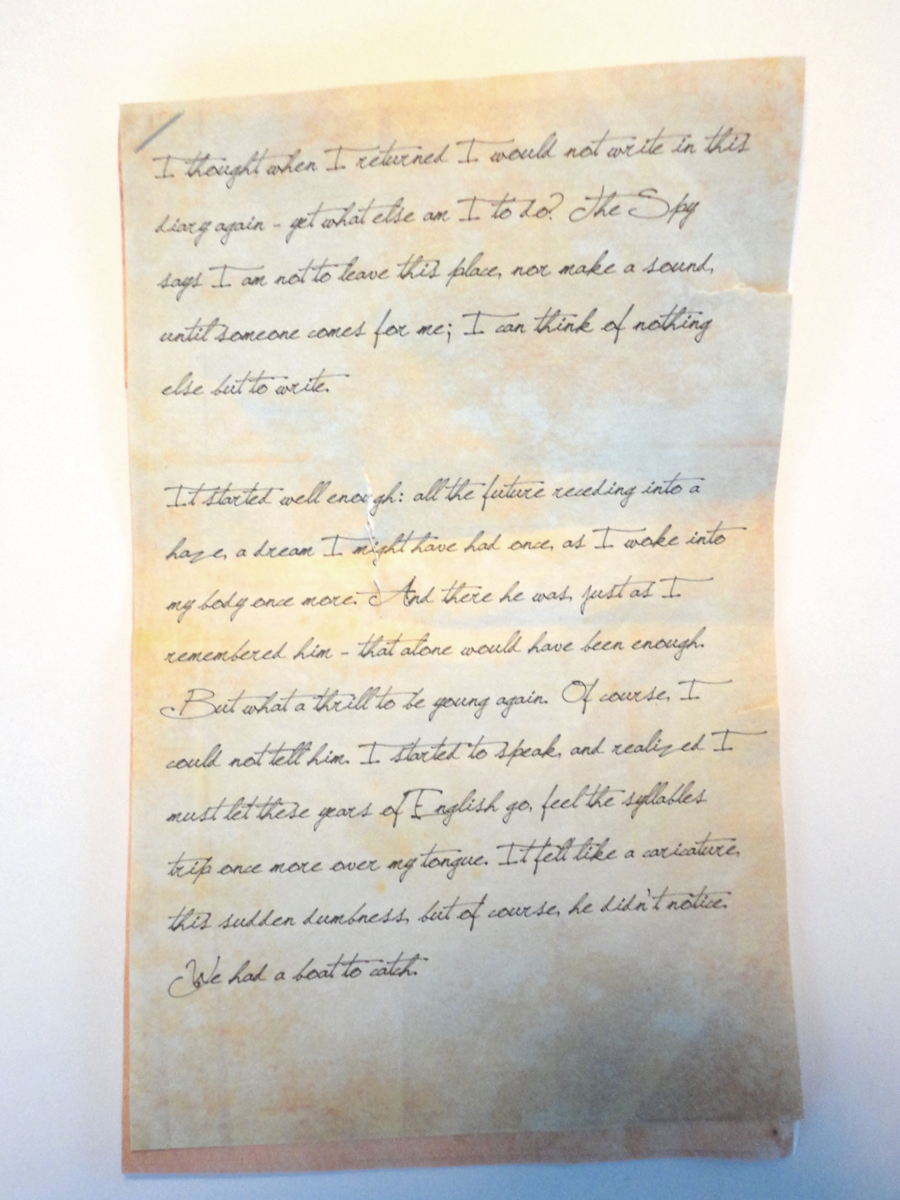 I thought when I returned I would not write in this
diary again - yet what else am I to do? The Spy
says I am not to leave this place, nor make a sound,
until someone comes for me; I can think of nothing
else but to write.
It started well enough: all the future receding into a
haze, a dream I might have had once, as I woke into
my body once more. And there he was, just as I
remembered him - that alone would have been enough.
But what a thrill to be young again. Of course, I
could not tell him. I started to speak, and realized I
must let these years of English go, feel the syllables
trip once more over my tongue. It felt like a caricature,
this sudden dumbness, but of course, he didn't notice.
We had a boat to catch.